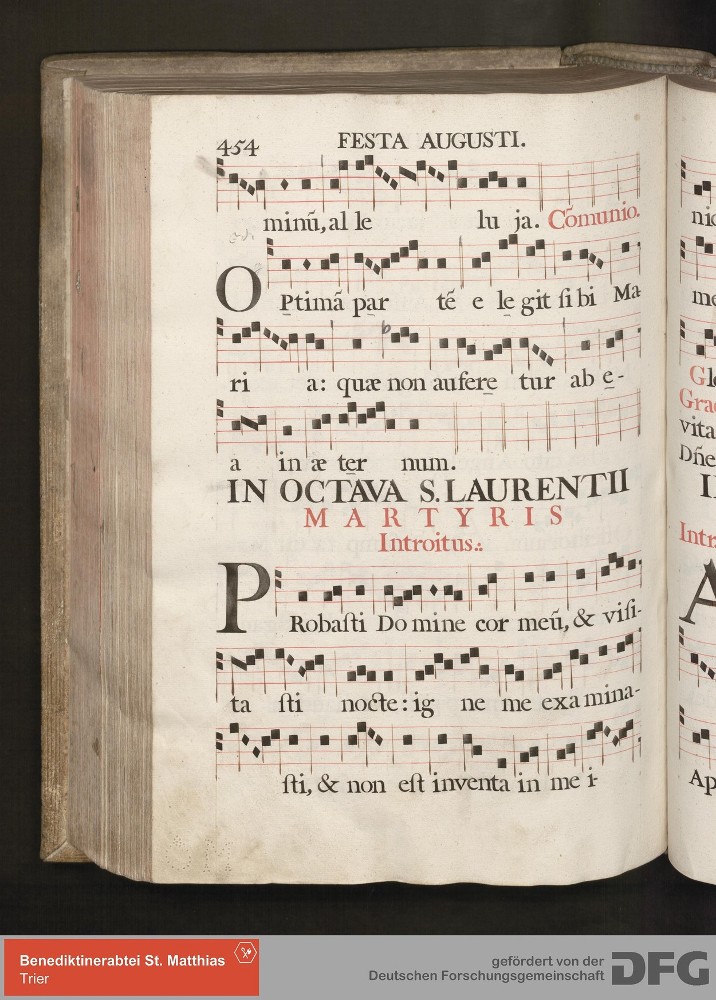 454 FESTA AUGUSTI.
minũ, al le lu ja. Cõmunio.
OPtimã par tẽ e le git ſi bi Ma-
ri a: quæ non aufere tur ab e-
a in æ ter num.
IN OCTAVA S. LAURENTII
MARTYRIS
Introitus.:.
PRobaſti Do mine cor meũ, & viſi-
ta ſti nocte: ig ne me exa mina-
ſti, & non eſt inventa in me i-
nic
me
Gl
Gra
vita
Dñe
I
Intr
A
Ap
Benediktinerabtei St. Matthias
Trier
gefördert von der
Deutschen Forschungsgemeinschaft
DFG